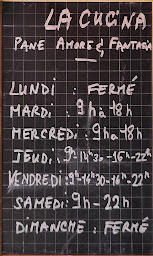 LA CUCINA
PANE AMORE & FANTASIA
LUNDI : FERMÉ
MARDI : 9h à 18h
MERCREDI : 9h-18h
JEUDI : 9h-14h30-16h-22h
VENDREDI : 9h-14h30-16h-22h
SAMEDI : 9h-22h
DIMANCHE : FERMÉ